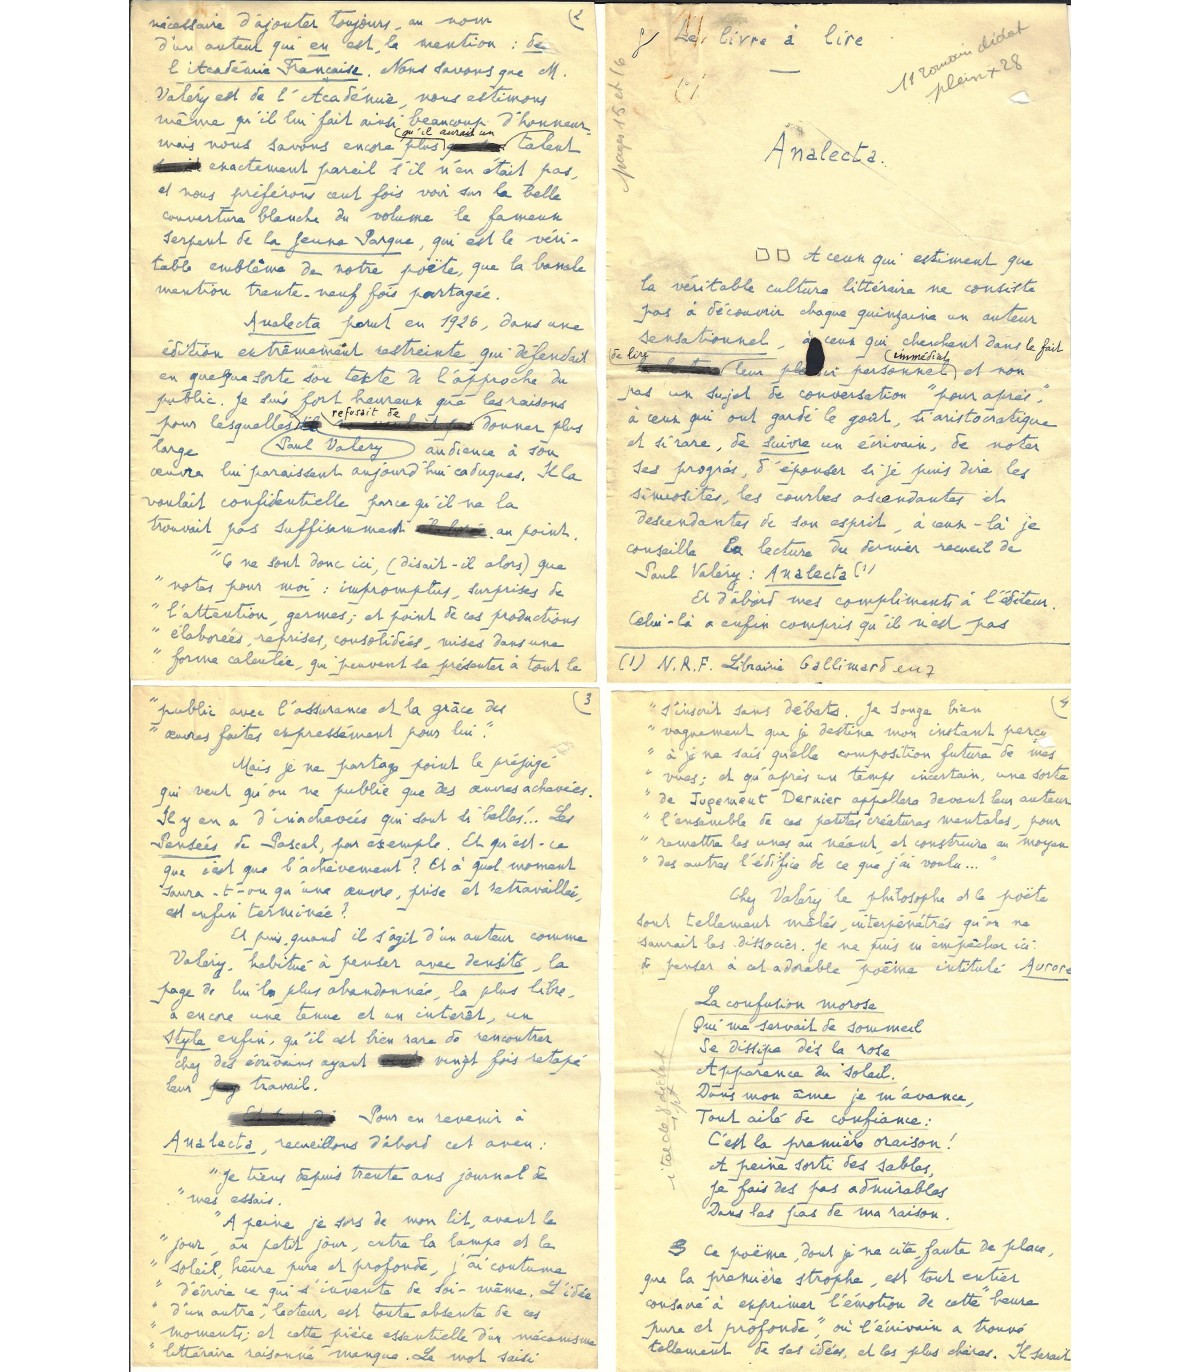 Le livre à lire
(1)
11 romain didot
plein x 28
pages 15 et 16
Analecta.
A ceux qui estiment que
la véritable culture littéraire ne consiste
pas à découvrir chaque quinzaine un auteur
sensationnel, à ceux qui cherchent dans le fait
de lire leur plaisir personnel immédiat et non
pas un sujet de conversation "pour après",
à ceux qui ont gardé le goût, si aristocratique
et si rare, de suivre un écrivain, de noter
ses progrès, d'épouser si je puis dire les
sinuosités, les courbes ascendantes et
descendantes de son esprit, à ceux-là je
conseille la lecture du dernier recueil de
Paul Valéry : Analecta (1)
Et d'abord mes compliments à l'éditeur.
Celui-là a enfin compris qu'il n'est pas
(1) N.R.F. Librairie Gallimard
(2
nécessaire d'ajouter toujours, au nom
d'un auteur qui en est, la mention : de
l'Académie Française. Nous savons que M.
Valéry est de l'Académie, nous estimons
même qu'il lui fait ainsi beaucoup d'honneur,
mais nous savons encore plus qu'il aurait un talent
exactement pareil s'il n'en était pas,
et nous préférons cent fois voir sur la belle
couverture blanche du volume le fameux
serpent de la Jeune Parque, qui est le véri-
table emblême de notre poëte, que la banale
mention trente-neuf fois partagée.
Analecta parut en 1926, dans une
édition extrêmement restreinte qui défendait
en quelque sorte son texte de l'approche du
public. Je suis fort heureux que les raisons
pour lesquelles Paul Valéry refusait de donner plus
large audience à son
œuvre lui paraissent aujourd'hui caduques. Il la
voulait confidentielle parce qu'il ne la
trouvait pas suffisamment au point.
"Ce ne sont donc ici, (disait-il alors) que
" notes pour moi : impromptus, surprises de
" l'attention, germes; et point de ces productions
" élaborées, reprises, consolidées, mises dans une
" forme calculée, qui peuvent se présenter à tout le
(3
" public avec l'assurance et la grâce des
" œuvres faites expressément pour lui".
Mais je ne partage point le préjugé
qui veut qu'on ne publie que des œuvres achevées.
Il y en a d'inachevées qui sont si belles... Les
Pensées de Pascal, par exemple. Et qu'est-ce
que c'est que l'achèvement ? Et à quel moment
saura-t-on qu'une œuvre, prise et retravaillée,
est enfin terminée ?
Et puis, quand il s'agit d'un auteur comme
Valéry, habitué à penser avec densité, la
page de lui la plus abandonnée, la plus libre,
a encore une tenue et un intérêt, un
style enfin, qu'il est bien rare de rencontrer
chez des écrivains ayant vingt fois retapé
leur travail.
Pour en revenir à
Analecta, recueillons d'abord cet aveu :
"Je tiens depuis trente ans journal de
" mes essais.
"A peine je sors de mon lit, avant le
" jour, au petit jour, entre la lampe et le
" soleil, heure pure et profonde, j'ai coutume
" d'écrire ce qui s'invente de soi-même. L'idée
" d'un autre, lecteur, est toute absente de ces
" moments; et cette pièce essentielle d'un mécanisme
" littéraire raisonné manque. Le mot saisi
(4
" s'inscrit sans débats. Je songe bien
" vaguement que je destine mon instant perçu
" à je ne sais quelle composition future de mes
" vues; et qu'après un temps incertain, une sorte
" de Jugement Dernier appellera devant leur auteur
" l'ensemble de ces petites créatures mentales, pour
" remettre les unes au néant, et construire au moyen
" des autres l'édifice de ce que j'ai voulu..."
Chez Valéry le philosophe et le poëte
sont tellement mêlés, interpénétrés qu'on ne
saurait les dissocier. Je ne puis m'empêcher ici
de penser à cet adorable poëme intitulé Aurore
La confusion morose
Qui me servait de sommeil
Se dissipe dès la rose
Apparence du soleil.
Dans mon âme je m'avance,
Tout ailé de confiance :
C'est la première oraison !
A peine sorti des sables,
Je fais des pas admirables
Dans les pas de ma raison.
Ce poëme, dont je ne cite, faute de place,
que la première strophe, est tout entier
consacré à exprimer l'émotion de cette "heure
pure et profonde", où l'écrivain a trouvé
tellement de ses idées, et les plus chères. Il serait